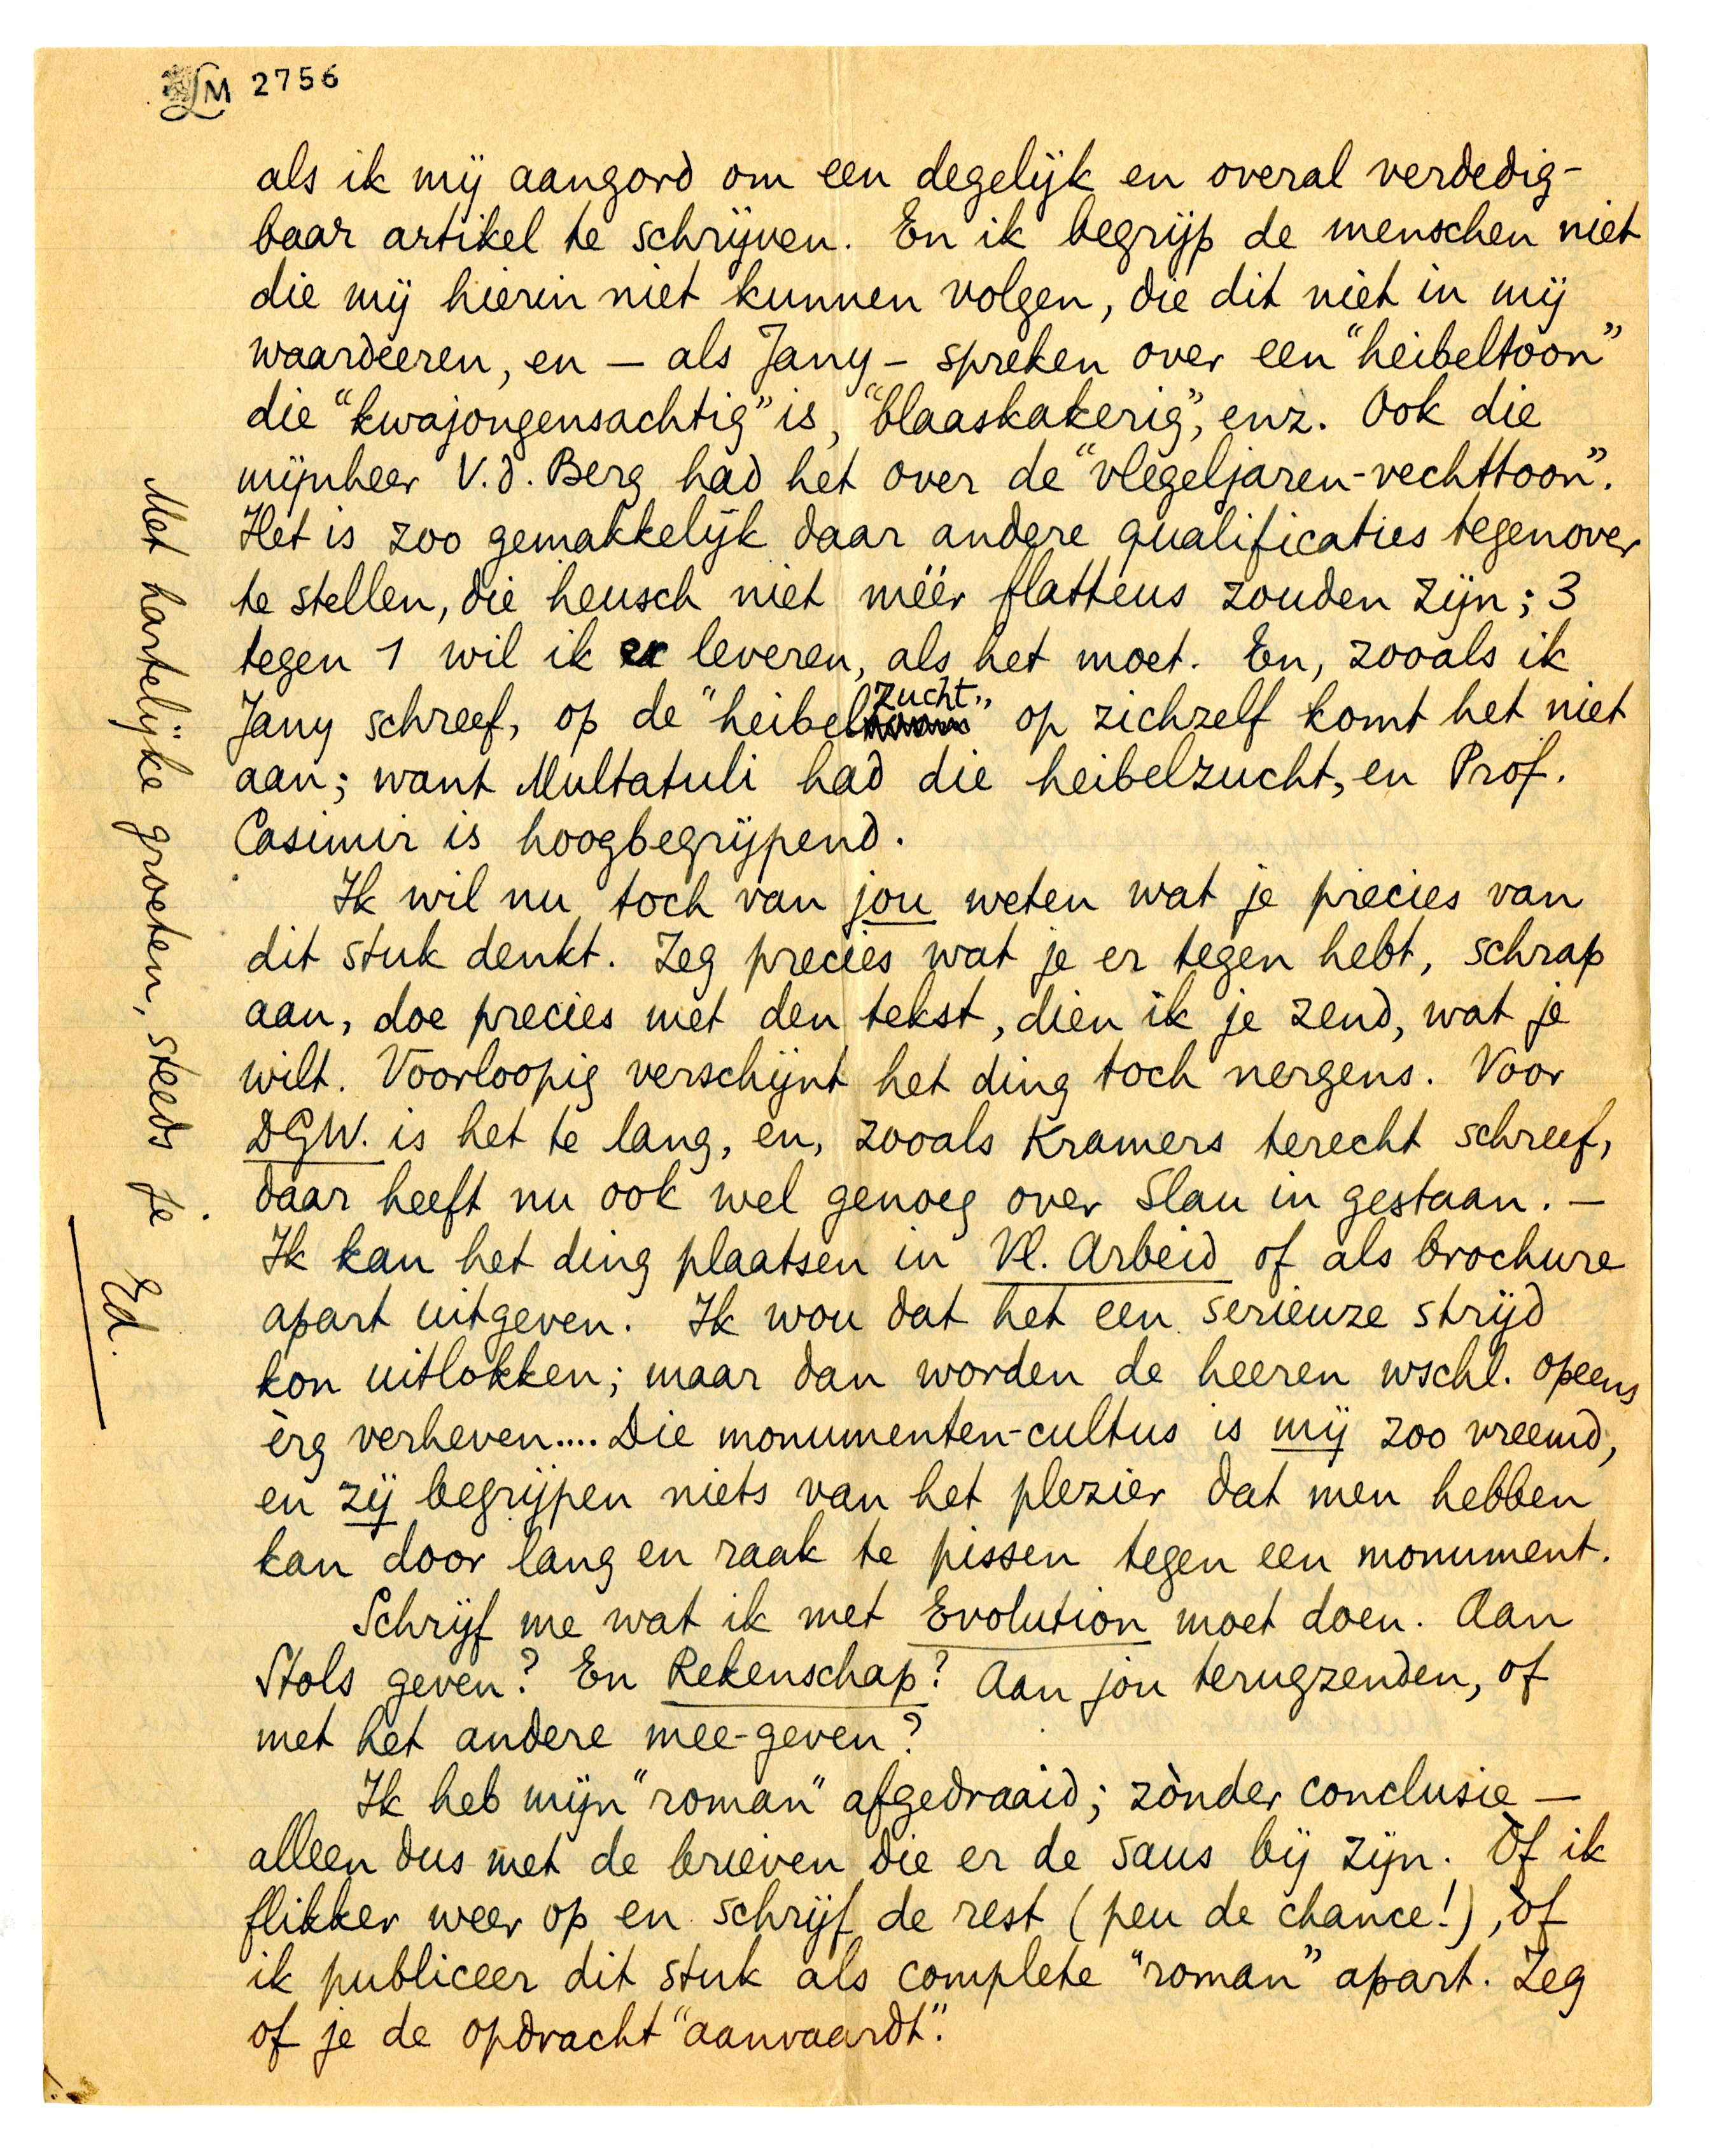 LM 2756
als ik mij aangord om een degelijk en overal verdedig-
baar artikel te schrijven. En ik begrijp de menschen niet
die mij hierin niet kunnen volgen, die dit niet in mij
waardeeren, en — als Jany — spreken over een "heibeltoon"
die "kwajongensachtig" is, "blaaskakerig", enz. Ook die
mijnheer V.d. Berg had het over de "vlegeljaren-vechttoon".
Het is zoo gemakkelijk daar andere qualificaties tegenover
te stellen, die heusch niet méér flatteus zouden zijn; 3
tegen 1 wil ik er leveren, als het moet. En, zooals ik
Jany schreef, op de "heibelzucht" op zichzelf komt het niet
aan; want Multatuli had die heibelzucht, en Prof.
Casimir is hoogbegrijpend.
Ik wil nu toch van jou weten wat je precies van
dit stuk denkt. Zeg precies wat je er tegen hebt, schrap
aan, doe precies met den tekst, dien ik je zend, wat je
wilt. Voorloopig verschijnt het ding toch nergens. Voor
DGW. is het te lang, en, zooals Kramers terecht schreef,
daar heeft nu ook wel genoeg over Slau in gestaan. —
Ik kan het ding plaatsen in Vl. Arbeid of als brochure
apart uitgeven. Ik wou dat het een serieuze strijd
kon uitlokken; maar dan worden de heeren wschl. opeens
èrg verheven.... Die monumenten-cultus is mij zoo vreemd,
en zij begrijpen niets van het plezier dat men hebben
kan door lang en raak te pissen tegen een monument.
Schrijf me wat ik met Evolution moet doen. Aan
Stols geven? En Rekenschap? Aan jou terugzenden, of
met het andere mee-geven?
Ik heb mijn "roman" afgedraaid; zònder conclusie —
alleen dus met de brieven die er de saus bij zijn. Òf ik
flikker weer op en schrijf de rest (peu de chance!), òf
ik publiceer dit stuk als complete "roman" apart. Zeg
of je de opdracht "aanvaardt".
Met hartelijke groeten, steeds je
Ed.